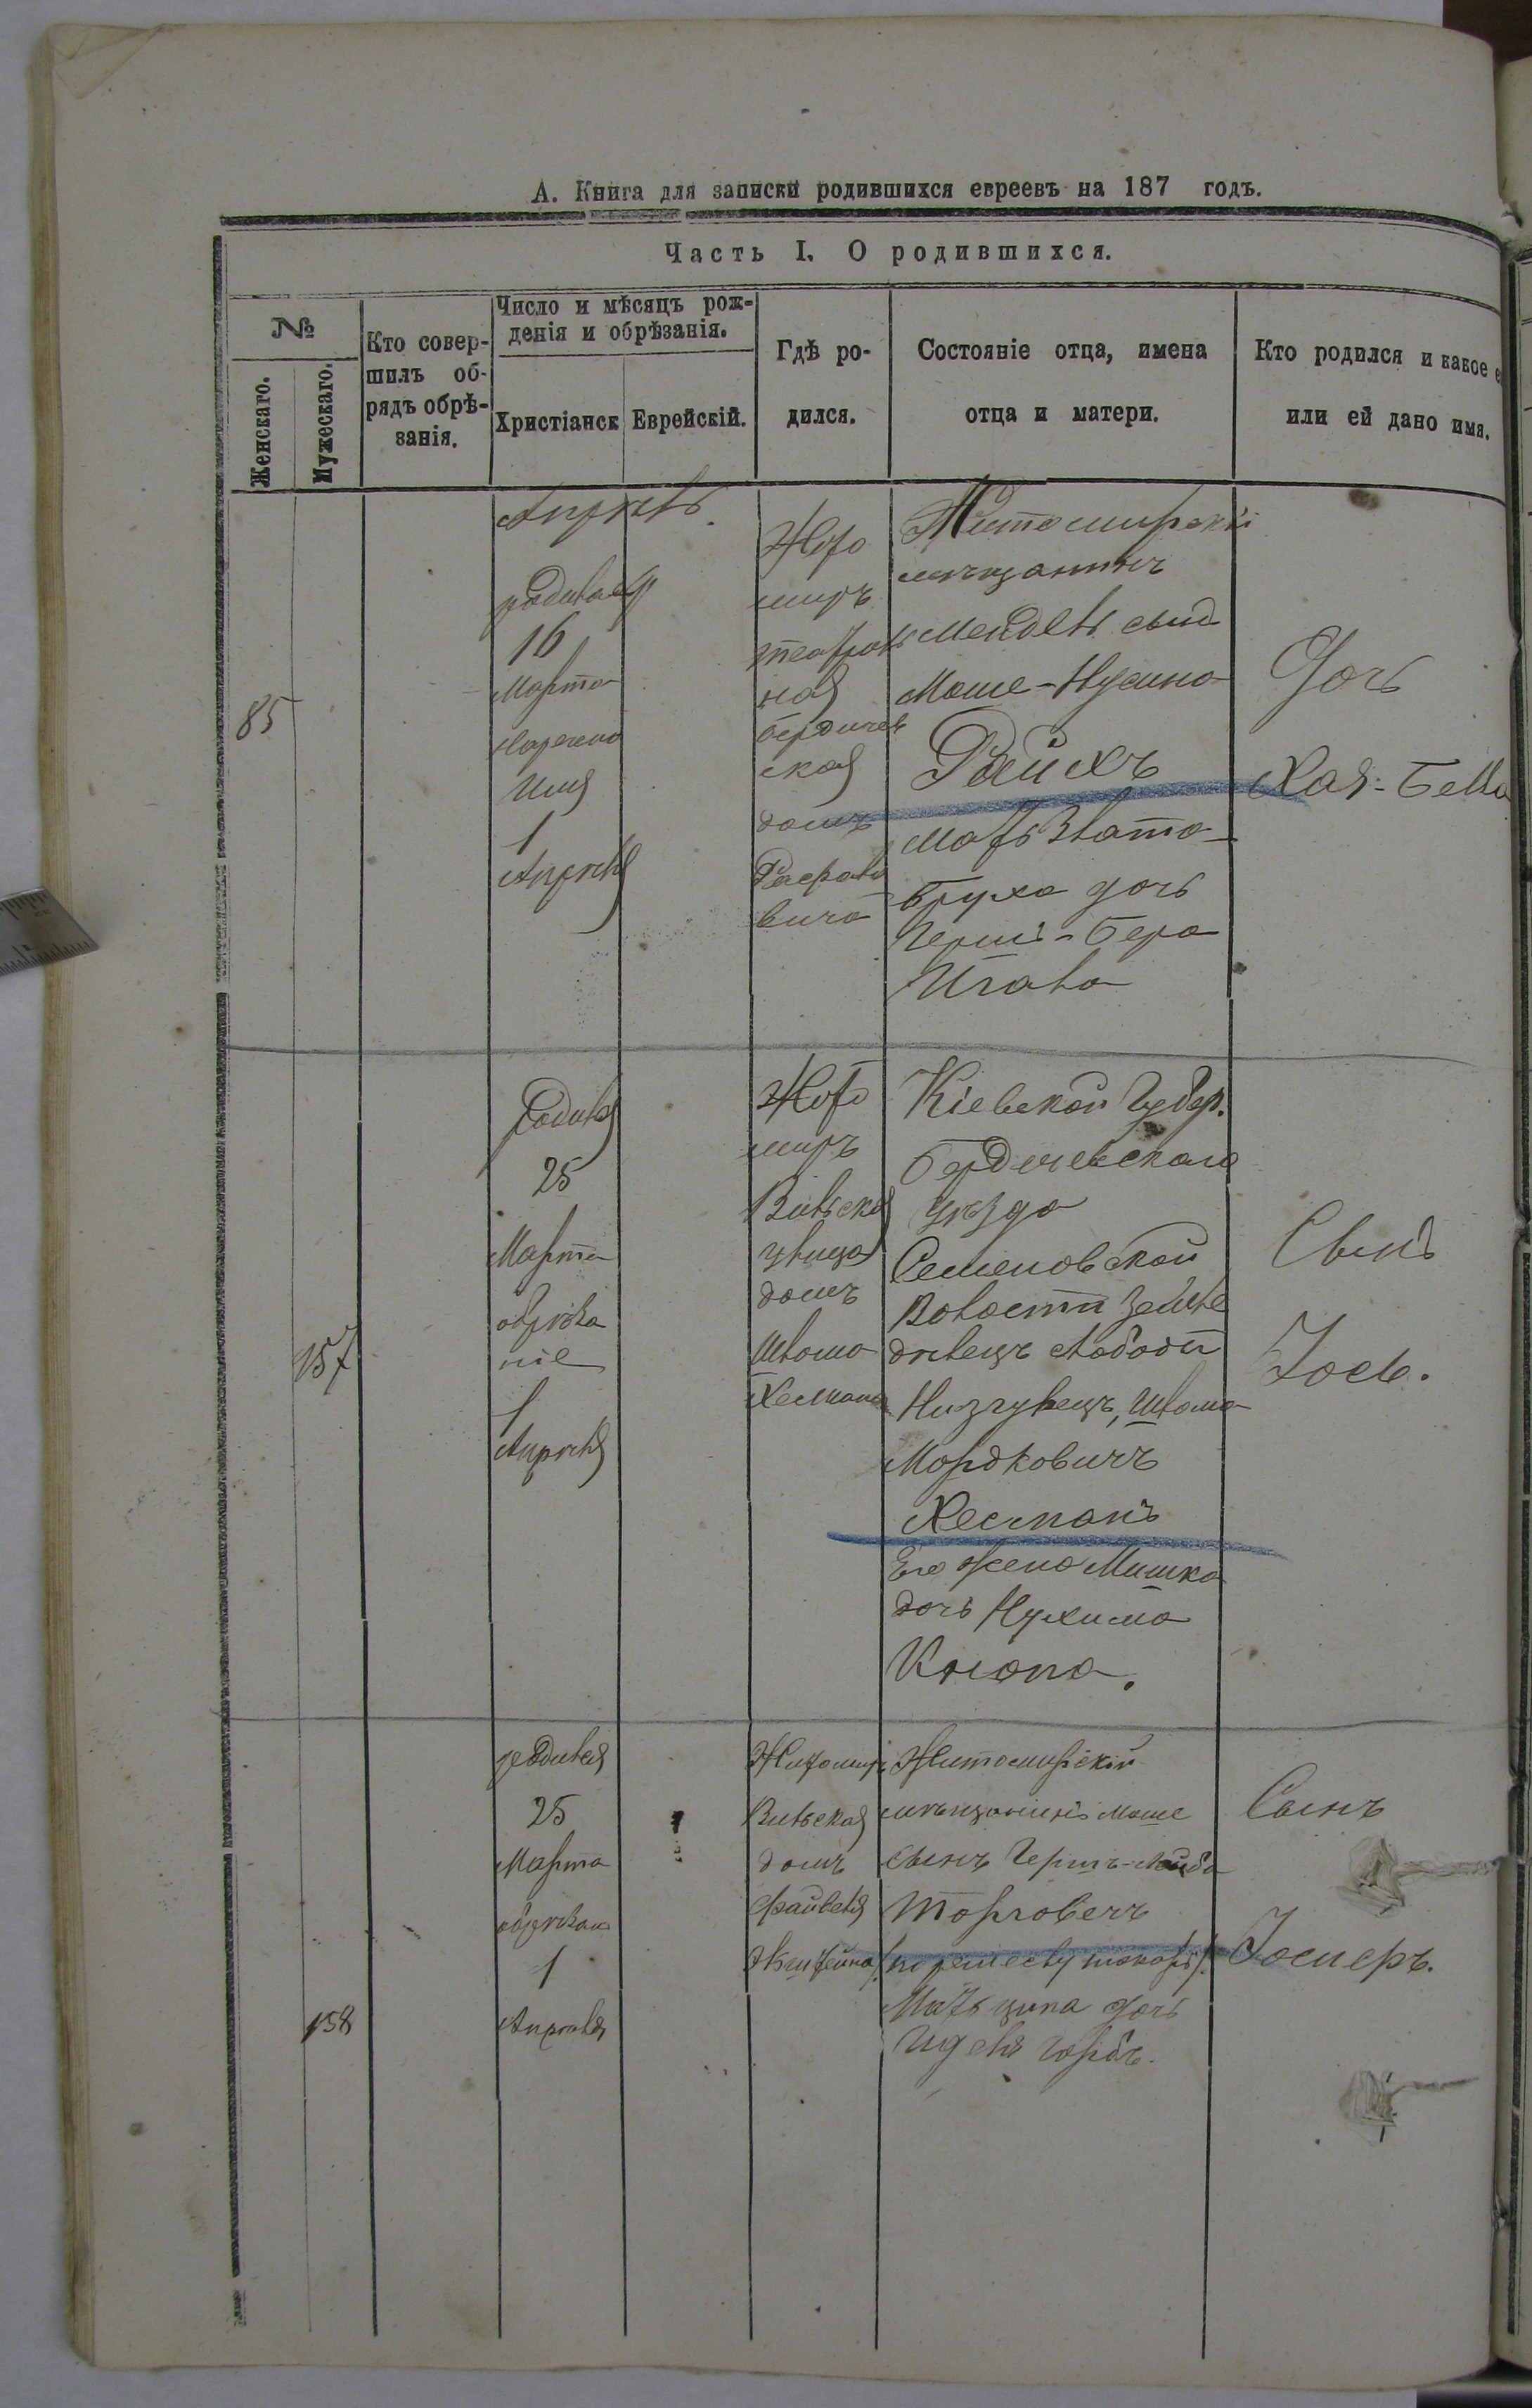 А. Книга для записки родившихся евреевъ на 187 годъ.
Часть I. О родившихся.
№
Женскаго.
Мужескаго.
Кто совер-
шилъ об-
рядъ обрѣ-
занія.
Число и мѣсяцъ рож-
денія и обрѣзанія.
Христіанск
Еврейскій.
Гдѣ ро-
дился.
Состояніе отца, имена
отца и матери.
Кто родился и какое е
или ей дано имя.
85
Апрѣль
родилась
16
Марта
наречено
Имя
1
Апрѣля
миръ
театраль
ная
бердичев
ская
домъ
вича
Житомирскій
мѣщанинъ
Мендель сынъ
Моше-Нусина
Райхъ
Мать Злата-
Бруха дочь
Герш-Бера
Дочь
Хая-Бейла
157
Родился
25
Марта
обрѣза
ніе
1
Апрѣля
миръ
Вильская
улица
домъ
Шлома
Хесмана
Кіевской Губер.
Бердичевскаго
уѣзда
Семеновской
Волости Земле
дѣлецъ слободы
Низгурецъ, Шлома
Мордковичъ
Хесманъ
Его жена Мишка
дочь Нухима
Сынъ
Іось.
158
родился
25
Марта
обрѣзан
1
Апрѣля
Житомиръ
Вильская
домъ
Файвеля
Житомирскій
мѣщанинъ Моше
сынъ Гершъ-Лейба
Торговечъ
/по ремеслу токарь/
Мать ципа дочь
Сынъ
Іосперъ.